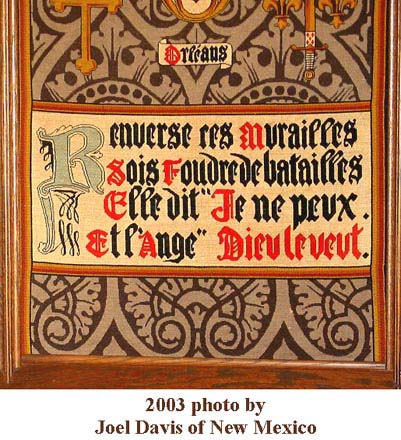 Orléans
Renverse ces Murailles
Sois Foudre de batailles
Elle dit "Je ne peux.
Et l'Ange" Dieu le veut.
2003 photo by
Joel Davis of New Mexico